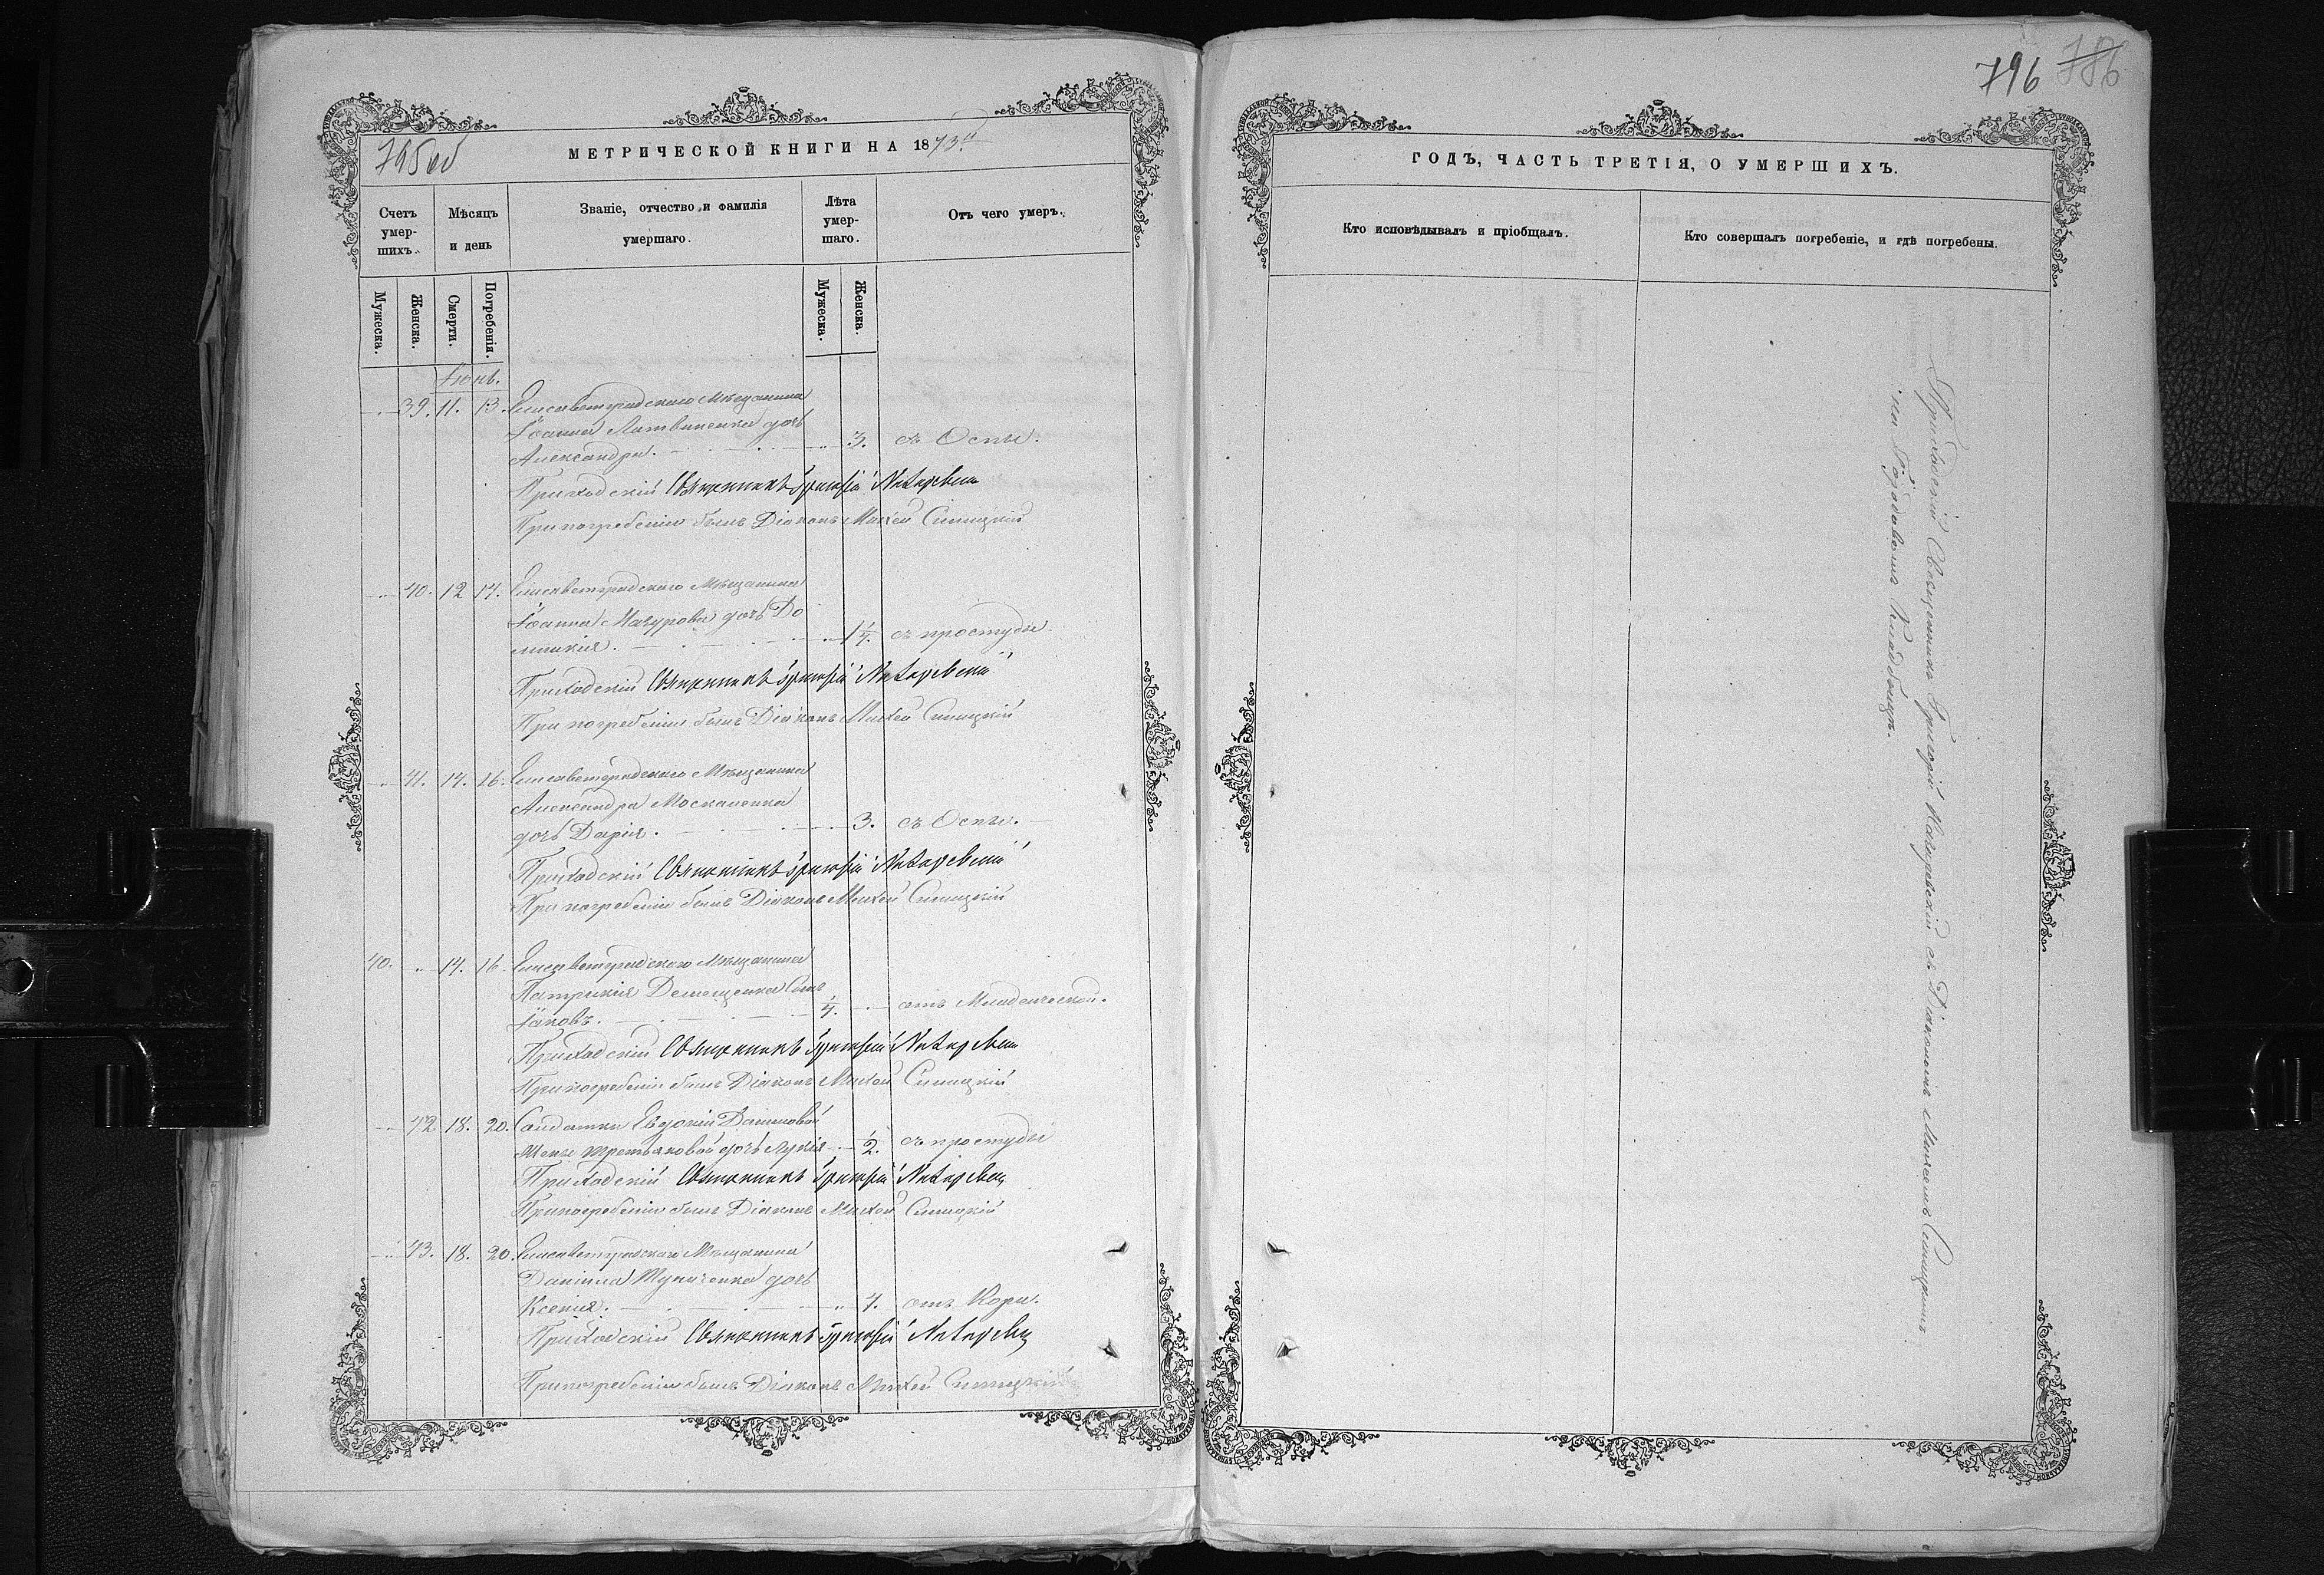 796 786
795 об
МЕТРИЧЕСКОЙ КНИГИ НА 1873й
ГОДЪ, ЧАСТЬ ТРЕТІЯ, О УМЕРШИХЪ.
Счетъ умер-шихъ.
Мѣсяцъ и день
Званіе, отчество и фамилія умершаго.
Лѣта умер-шаго.
Отъ чего умеръ.
Кто исповѣдывалъ и пріобщалъ.
Кто совершалъ погребеніе, и гдѣ погребены.
Мужеска. Женска. Смерти. Погребенія. Мужеска. Женска.
Іюнь.
39. 11. 13. Елисаветградскаго Мѣщанина
Іоанна Литвиненка дочь
Александра. 3. съ Оспы.
Приходскій Священникъ Григорій
При погребеніи былъ Діаконъ Михей Синицкій
40. 12 14. Елисаветградскаго Мѣщанина
Іоанна Мазурова дочь До
мникія. 1 1/4. съ простуды.
Приходскій Священникъ Григорій
При погребеніи былъ Діаконъ Михей Синицкій
41. 14. 16. Елисаветградскаго Мѣщанина
Александра Москаленка
дочь Дарія. 3. съ Оспы.
Приходскій Священникъ Григорій
При погребеніи былъ Діаконъ Михей Синицкій
40. 14. 16. Елисаветградскаго Мѣщанина
Патрикія Сынъ
Іаковъ. 1/4. отъ Младенческой.
Приходскій Священникъ Григорій
При погребеніи былъ Діаконъ Михей Синицкій
42 18. 20. Солдатки Евдокіи
дочь Лукія 1/2. съ простуды
Приходскій Священникъ Григорій
При погребеніи былъ Діаконъ Михей Синицкій
43. 18. 20. Елисаветградскаго Мѣщанина
Даніила дочь
Ксенія. 4. отъ Кори.
Приходскій Священникъ Григорій
При погребеніи былъ Діаконъ Михей Синицкій
Приходскій Священникъ Григорій съ Діакономъ Михеемъ Синицкимъ
на Городовомъ Кладбищѣ.